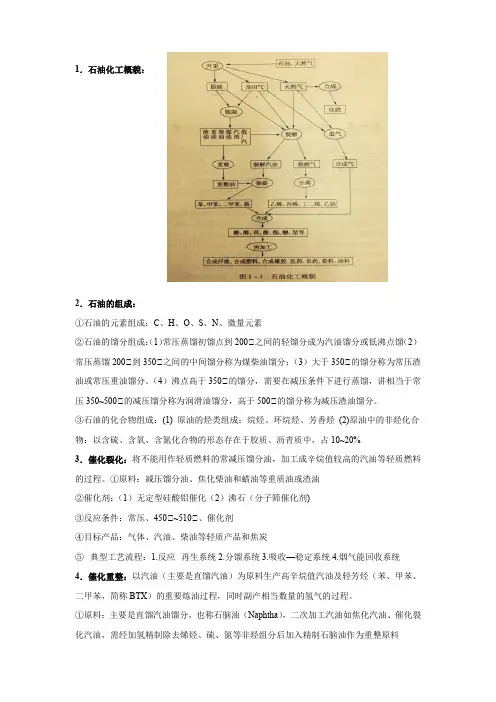 1．石油化工概貌：
开采 石油、天然气
原油 油田气 天然气 合成
化肥
炼制
裂解 造气
重整 裂解汽油 裂解气 合成气
重整油 抽提 分离
苯、甲苯、二甲苯、萘 乙烯、丙烯、丁二烯、乙炔
合成
再加工
合成纤维、合成塑料、合成橡胶、医药、农药、染料、涂料
图1-1 石油化工概貌
2．石油的组成：
①石油的元素组成：C、H、O、S、N、微量元素
②石油的馏分组成：（1）常压蒸馏初馏点到 200℃之间的轻馏分成为汽油馏分或低沸点馏（2）
常压蒸馏 200℃到 350℃之间的中间馏分称为煤柴油馏分；（3）大于 350℃的馏分称为常压渣
油或常压重油馏分。（4）沸点高于 350℃的馏分，需要在减压条件下进行蒸馏，讲相当于常
压 350~500℃的减压馏分称为润滑油馏分，高于 500℃的馏分称为减压渣油馏分。
③石油的化合物组成：(1) 原油的烃类组成：烷烃、环烷烃、芳香烃 (2)原油中的非烃化合
物：以含硫、含氧、含氮化合物的形态存在于胶质、沥青质中，占 10~20%
3．催化裂化：将不能用作轻质燃料的常减压馏分油，加工成辛烷值较高的汽油等轻质燃料
的过程。①原料：减压馏分油、焦化柴油和蜡油等重质油或渣油
②催化剂：（1）无定型硅酸铝催化（2）沸石（分子筛催化剂)
③反应条件：常压、450℃~510℃、催化剂
④目标产品：气体、汽油、柴油等轻质产品和焦炭
⑤ 典型工艺流程：1.反应 再生系统 2.分馏系统 3.吸收—稳定系统 4.烟气能回收系统
4．催化重整：以汽油（主要是直馏汽油）为原料生产高辛烷值汽油及轻芳烃（苯、甲苯、
二甲苯，简称 BTX）的重要炼油过程，同时副产相当数量的氢气的过程。
①原料：主要是直馏汽油馏分，也称石脑油（Naphtha），二次加工汽油如焦化汽油、催化裂
化汽油，需经加氢精制除去烯烃、硫、氮等非烃组分后加入精制石脑油作为重整原料